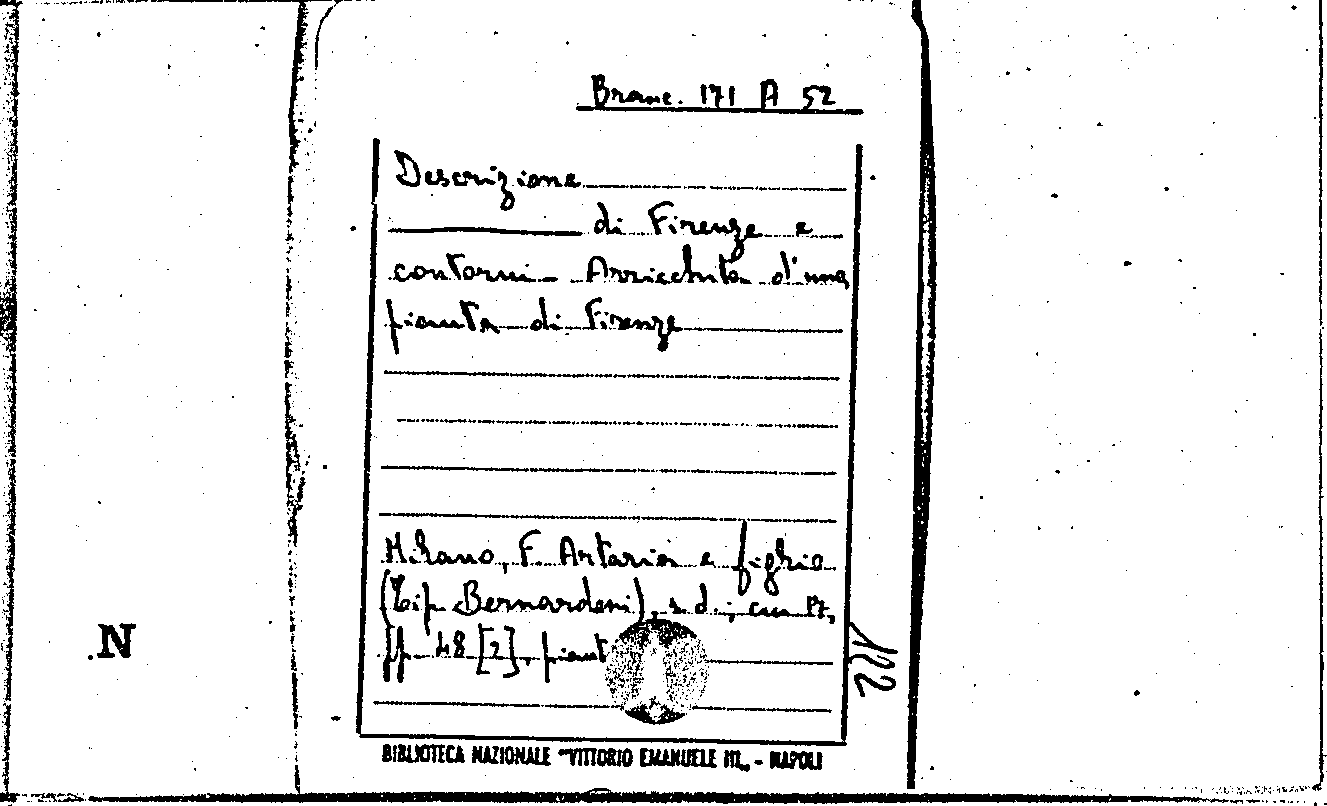 Branc. 171 A 52
Descrizione
di Firenze e
contorni - Arricchita d'una
pianta di Firenze
Milano, F. Artaria e figlio
(Tip. Bernardoni), s. d.; cm
pp. 48 [2], piant
122
N
BIBLIOTECA NAZIONALE "VITTORIO EMANUELE III„ - NAPOLI